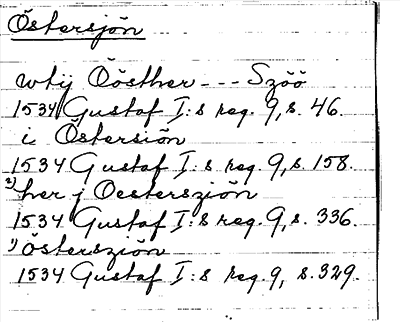 Östersjön
wtij Öösther --- Szöö
1534 Gustaf I:s reg. 9, s. 46.
i Östersiön
1534 Gustaf I:s reg. 9, s. 158.
2) her j Oesterszjön
1534 Gustaf I:s reg. 9, s. 336.
1) Östersziön
1534 Gustaf I:s reg. 9, s. 329.